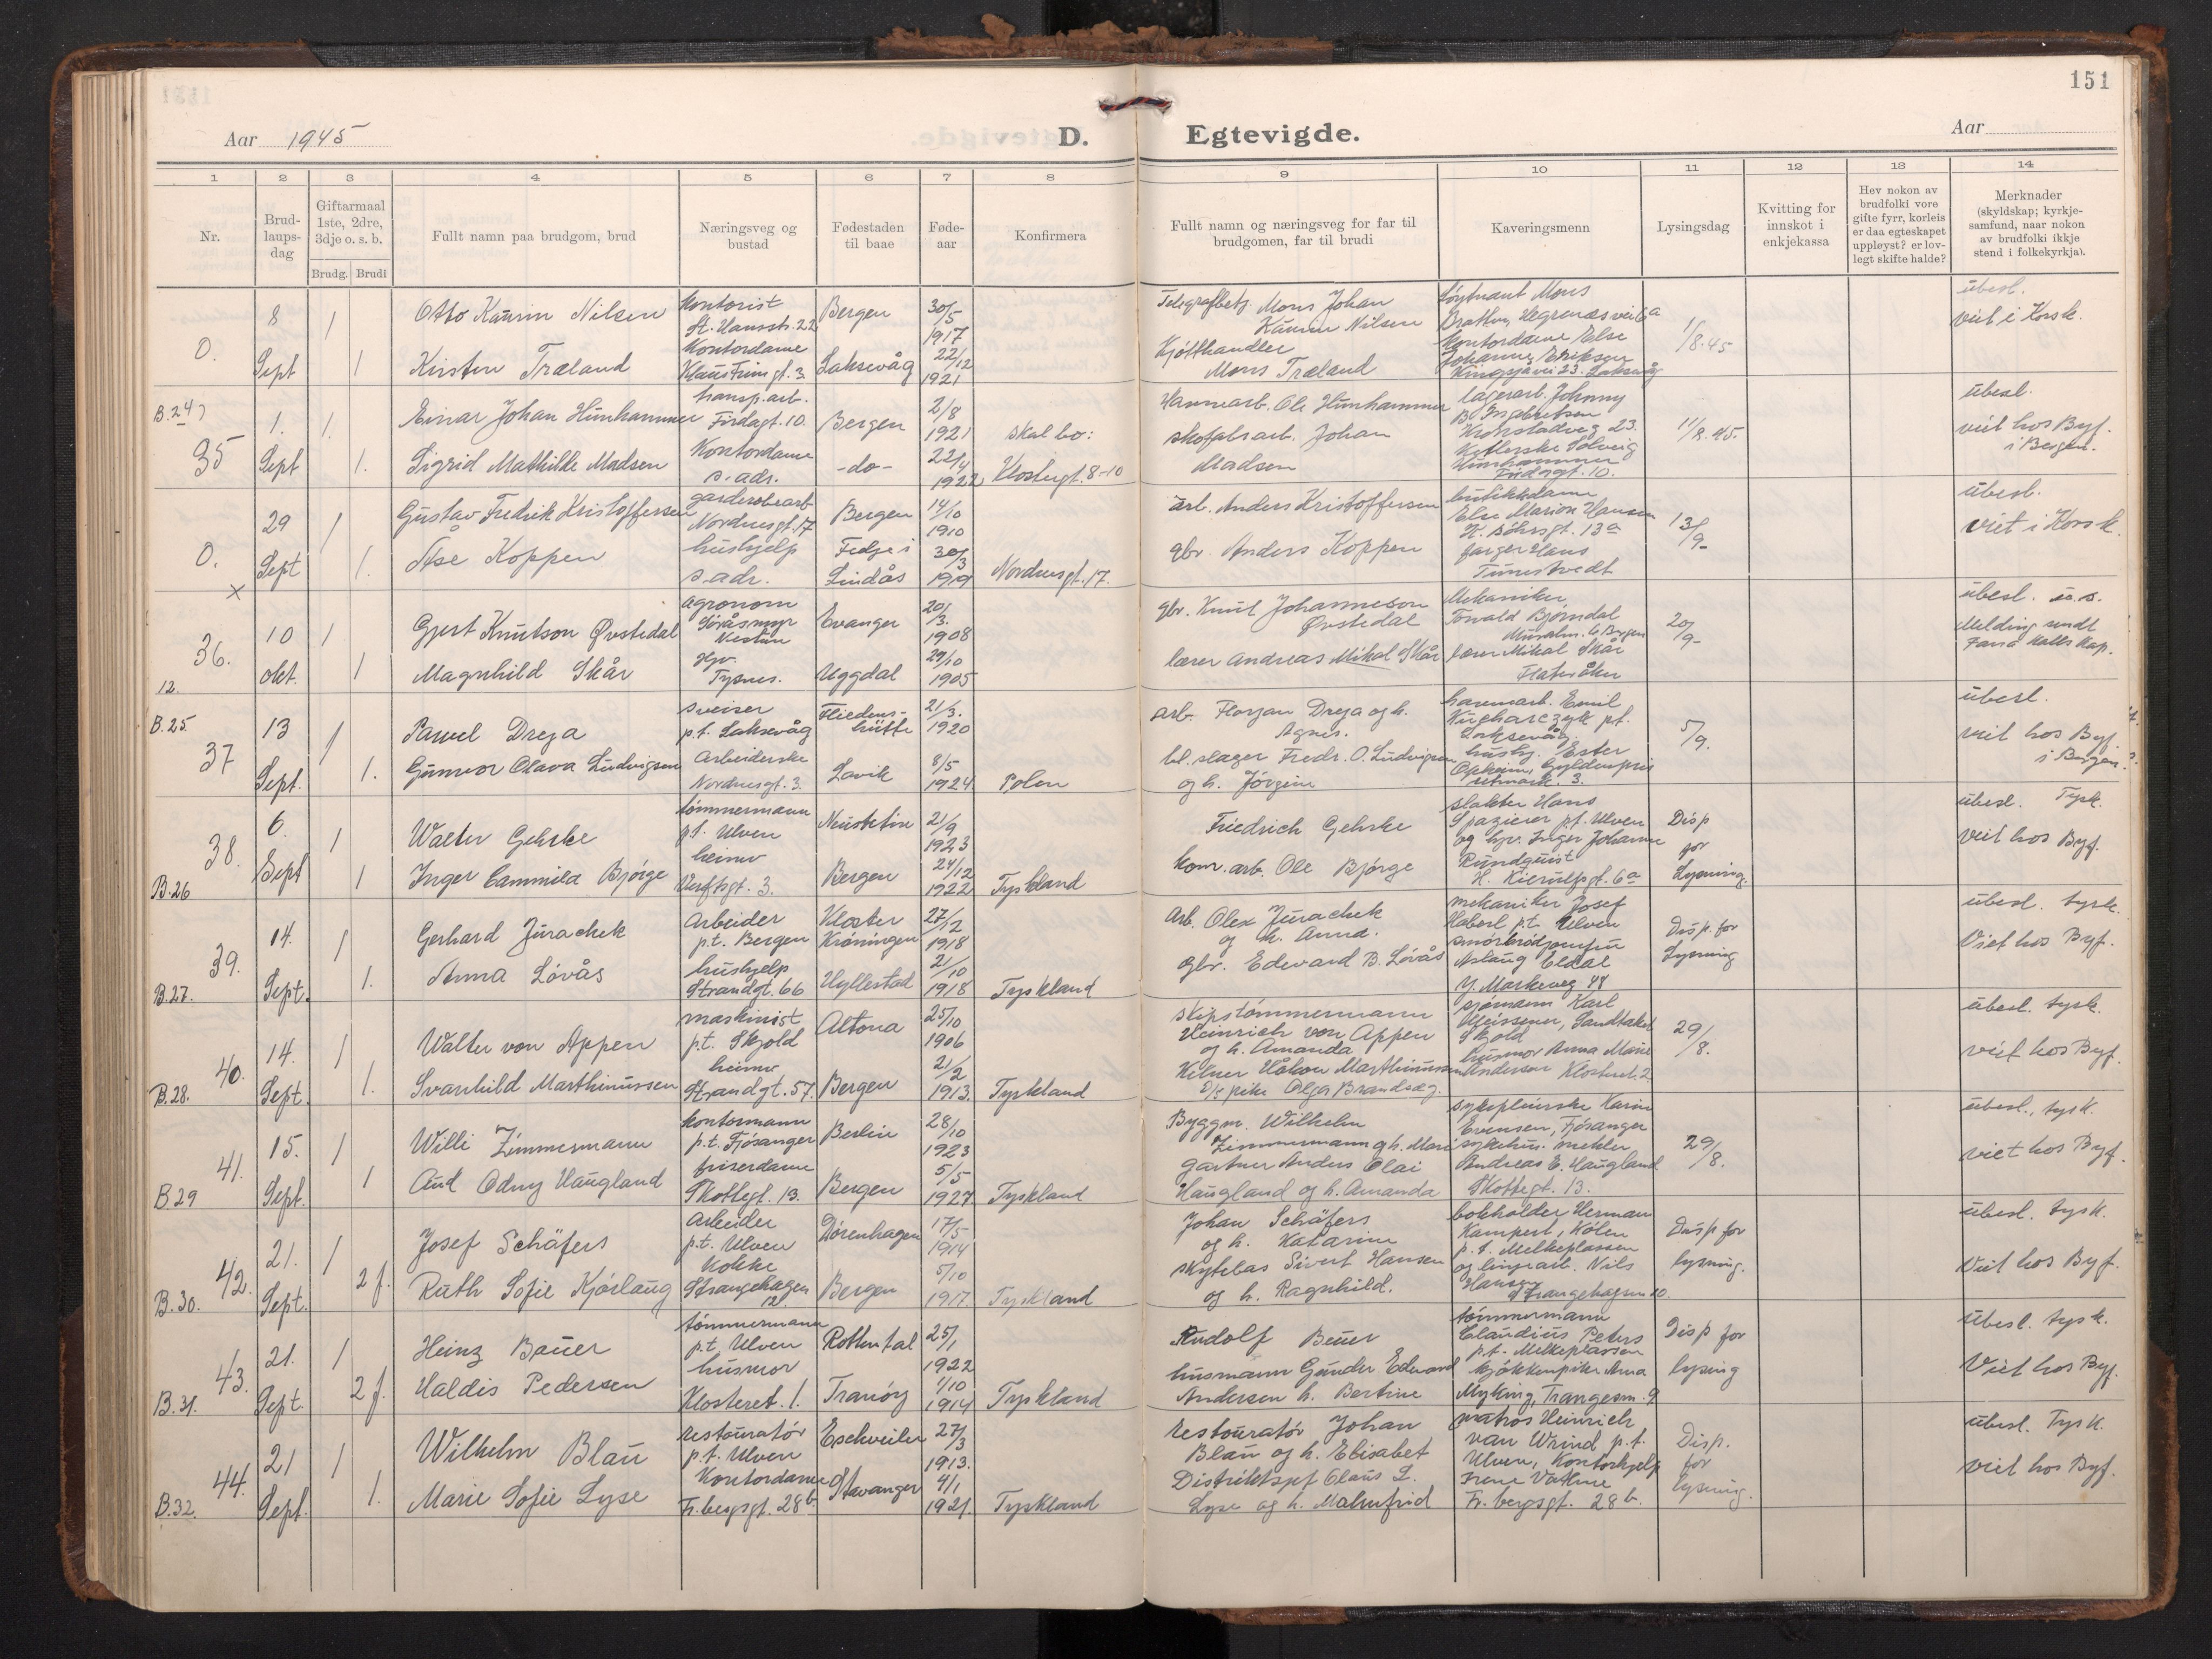 151
Aar 1945
D. Egtevigde.
Aar
1 2 3 4 5 6 7 8 9 10 11 12 13 14
Nr.
Brud-
laups-
dag
Giftarmaal
1ste, 2dre,
3dje o. s. b.
Brudg. Brudi
Fullt namn paa brudgom, brud
Næringsveg og
bustad
Fødestaden
til baae
Føde-
aar
Konfirmera
Fullt namn og næringsveg for far til
brudgomen, far til brudi
Kaveringsmenn
Lysingsdag
Kvitting for
innskot i
enkjekassa
Hev nokon av
brudfolki vore
gifte fyrr, korleis
er daa egteskapet
uppløyst? er lov-
legt skifte halde?
Merknader
(skyldskap; kyrkje-
samfund, naar nokon
av brudfolki ikkje
stend i folkekyrkja).
0.
8
Sept
1
1
Otto Kaurin Nilsen
Kirsten Træland
Kontorist
St. Hansstr. 22
Kontordame
gt. 3.
Bergen
Laksevåg
30/5
1917
22/12
1921
Telegrafbetj. Mons Johan
Kaurin Nilsen
Kjøtthandler
Mons Træland
løytnant Mons
Bratten, Hegrenæsvei 6a
Kontordame Else
Johanne Eriksen
23. Laksevåg
1/8.45
ubesl.
viet i Korsk.
B.24
35
1.
Sept
1.
1.
Einar Johan Hunhammer
Sigrid Mathilde Madsen
transp.arb.
Firdagt. 10.
Kontordame
s. adr.
Bergen
-do-
2/8
1921
22/4
1922
Skal bo:
Klostergt. 8-10
Havnearb. Ole Hunhammer
skofabr.arb. Johan
Madsen
lagerarb. Johnny
B. Ingebretsen
Kronstadveg 23.
Solveig
Hunhammer
Firdagt. 10.
11/8.45.
ubesl.
viet hos Byf.
i Bergen.
0.
x
29
Sept
1
1.
Gustav Fredrik Kristoffersen
Åse Koppen
garderobearb
Nordnesgt. 17
hushjelp
s. adr.
Bergen
Fedje i
Lindås
14/10
1910
30/3
1919
Nordnesgt. 17.
arb. Anders Kristoffersen
gbr. Anders Koppen
butikkdame
Else Marion Hansen
gt. 13a
farger Hans
Tunestvedt
13/9-
ubesl.
viet i Korsk.
36.
12.
10
okt.
1
1
Gjert Knutson Øvstedal
Magnhild Skår
agronom
Söråsmyr
Nestun
Hjv.
Tysnes.
Evanger
Uggdal
20/3.
1908
29/10
1905
gbr. Knut Johanneson
Øvstedal
lærer Andreas Mikal Skår
Mekaniker
Torvald Bjørndal
Bergen
lærer Mikal Skår
Flateråker
20/9-
ubesl. u.s.
Melding sendt
Kap.
B.25.
37
13
Sept.
1
1.
Pawel Dreja
Gunvor Olava Ludvigsen
sveiser
p.t. Laksevåg
Arbeiderske
Nordnesgt. 3.
Friedens-
hütte
Lavik
21/3.
1920
8/5
1924
Polen
arb. Florjan Dreja og h.
Agnes.
bl.slager Fredr. O. Ludvigsen
og h. Jørgine
havnearb. Emil
Kucharczyk pt.
Laksevåg
hushj. Ester
Opheim, Gyldenpris
3.
5/9.
ubesl.
viet hos Byf
i Bergen.
38.
B.26
6.
Sept
1
1
Walter Gehrke
Inger Cammila Bjørge
tømmermann
p.t. Ulven
heimv
Verftsgt. 3.
Neustetin
Bergen
21/9
1923
24/12
1922
Tyskland
Friedrich Gehrke
kom. arb. Ole Bjørge
slakter Hans
Spazierer p.t. Ulven
og hjv. Inger Johanne
Rundquist
H. Kierulfsgt. 6a
Disp
for
Lysning.
ubesl. Tysk.
viet hos Byf.
39.
B.27.
14.
Sept.
1
1.
Gerhard Jurachek
Anna Løvås
Arbeider
p.t. Bergen
hushjelp
Strandgt. 66
Kloster
Kröningen
Hyllestad
27/12
1918
21/10
1918
Tyskland
Arb. Olex Jurachek
og h. Anna.
Gbr. Edvard B. Løvås
mekaniker Josef
Haberl p.t. Ulven
smörbrödjomfru
Aslaug Eldal
Y. Markeveg 48
Disp. for
Lysning
ubesl. tysk.
Viet hos Byf.
40.
B.28.
14.
Sept.
1
1.
Walter von Appen
Svanhild Marthinussen
maskinist
p.t. Skjold
heimv
Strandgt. 57.
Altona
Bergen
25/10
1906
21/2
1913.
Tyskland
skipstømmermann
Heinrich von Appen
og h. Amanda
Kelner Håkon Marthinussen
pike Olga Brandsæg.
sjømann Karl
Meissener, Sandtaket
Skjold
husmor Anna Marie
Andersen Klosteret. 2
29/8.
ubesl. tysk.
viet hos Byf.
41.
B.29
15.
Sept.
1
1
Willi Zimmermann
Aud Odny Haugland
kontormann
p.t. Fjøsanger
friserdame
Skottegt. 13.
Berlin
Bergen
28/10
1923
5/5
1927
Tyskland
Byggm. Wilhelm
Zimmermann og h. Marie
Gartner Anders Olai
Haugland og h. Amanda
sykepleierske Karin
Evensen, Fjøsanger
sykehus. mekler
Andreas E. Haugland
Skottegt. 13.
29/8.
ubesl., tysk.
viet hos Byf.
42.
B.30.
21.
Sept.
1
2 f.
Josef Schäfers
Ruth Sofie Kjørlaug
Arbeider
p.t. Ulven
Kokke
Strangehagen
12.
Dörenhagen
Bergen
17/5
1914
5/10
1917.
Tyskland
Johan Schäfers
og h. Katarina
Skytebas Sivert Hansen
og h. Ragnhild.
bokholder Herman
Kampert, Kölen
p.t. Melkeplassen
og linjearb. Nils
Hansen
Strangehagen 10.
Disp for
lysning.
ubesl. tysk.
Viet hos Byf.
43.
B.31.
21.
Sept.
1
2 f.
Heinz Bauer
Haldis Pedersen
tømmermann
p.t. Ulven
husmor
Klosteret. 1.
Rottental
Tranöy
25/1
1922
1/10
1914
Tyskland
Rudolf Beuer
husmann Gunder Edvard
Andersen h. Bertine
tømmermann
Claudius Peters
p.t. Melkeplassen
kjøkkenpike Anna
Myking, Trangesm. 9
Disp for
lysing
ubesl. tysk.
Viet hos Byf.
44.
B.32.
21
Sept.
1
1.
Wilhelm Blau
Marie Sofie Lyse
restauratør
p.t. Ulven
Kontordame
Fr. bergsgt. 28b.
Eschweiler
Stavanger
27/3
1913.
4/1
1921.
Tyskland
Restauratør Johan
Blau og h. Elisabet
Distriktspf Claus L.
Lyse og h. Malmfrid
matros Heinrich
van Wrind p.t.
Ulven, Kontorhjelp
Irene Vatne
Fr. bergsgt. 28b.
Disp.
for
lysning.
ubesl. Tysk.
viet hos Byf.